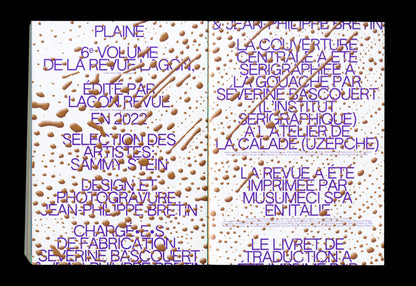 PLAINE
6e VOLUME
DE LA REVUE LAGON,
ÉDITÉ PAR
LAGON REVUE
EN 2022
SÉLECTION DES
ARTISTES:
SAMMY STEIN
DESIGN ET
PHOTOGRAVURE:
JEAN-PHILIPPE BRETIN
CHARGÉ·E·S
DE FABRICATION:
SÉVERINE BASCOUERT
& JEAN-PHILIPPE BRETIN
& JEAN-PHILIPPE BRETIN
LA COUVERTURE
CENTRALE A ÉTÉ
SÉRIGRAPHIÉE À
LA GOUACHE PAR
SÉVERINE BASCOUERT
(L'INSTITUT
SÉRIGRAPHIQUE)
À L'ATELIER DE
LA CALADE (UZERCHE)
LA REVUE A ÉTÉ
IMPRIMÉE PAR
MUSUMECI SPA
EN ITALIE
LE LIVRET DE
TRADUCTION A